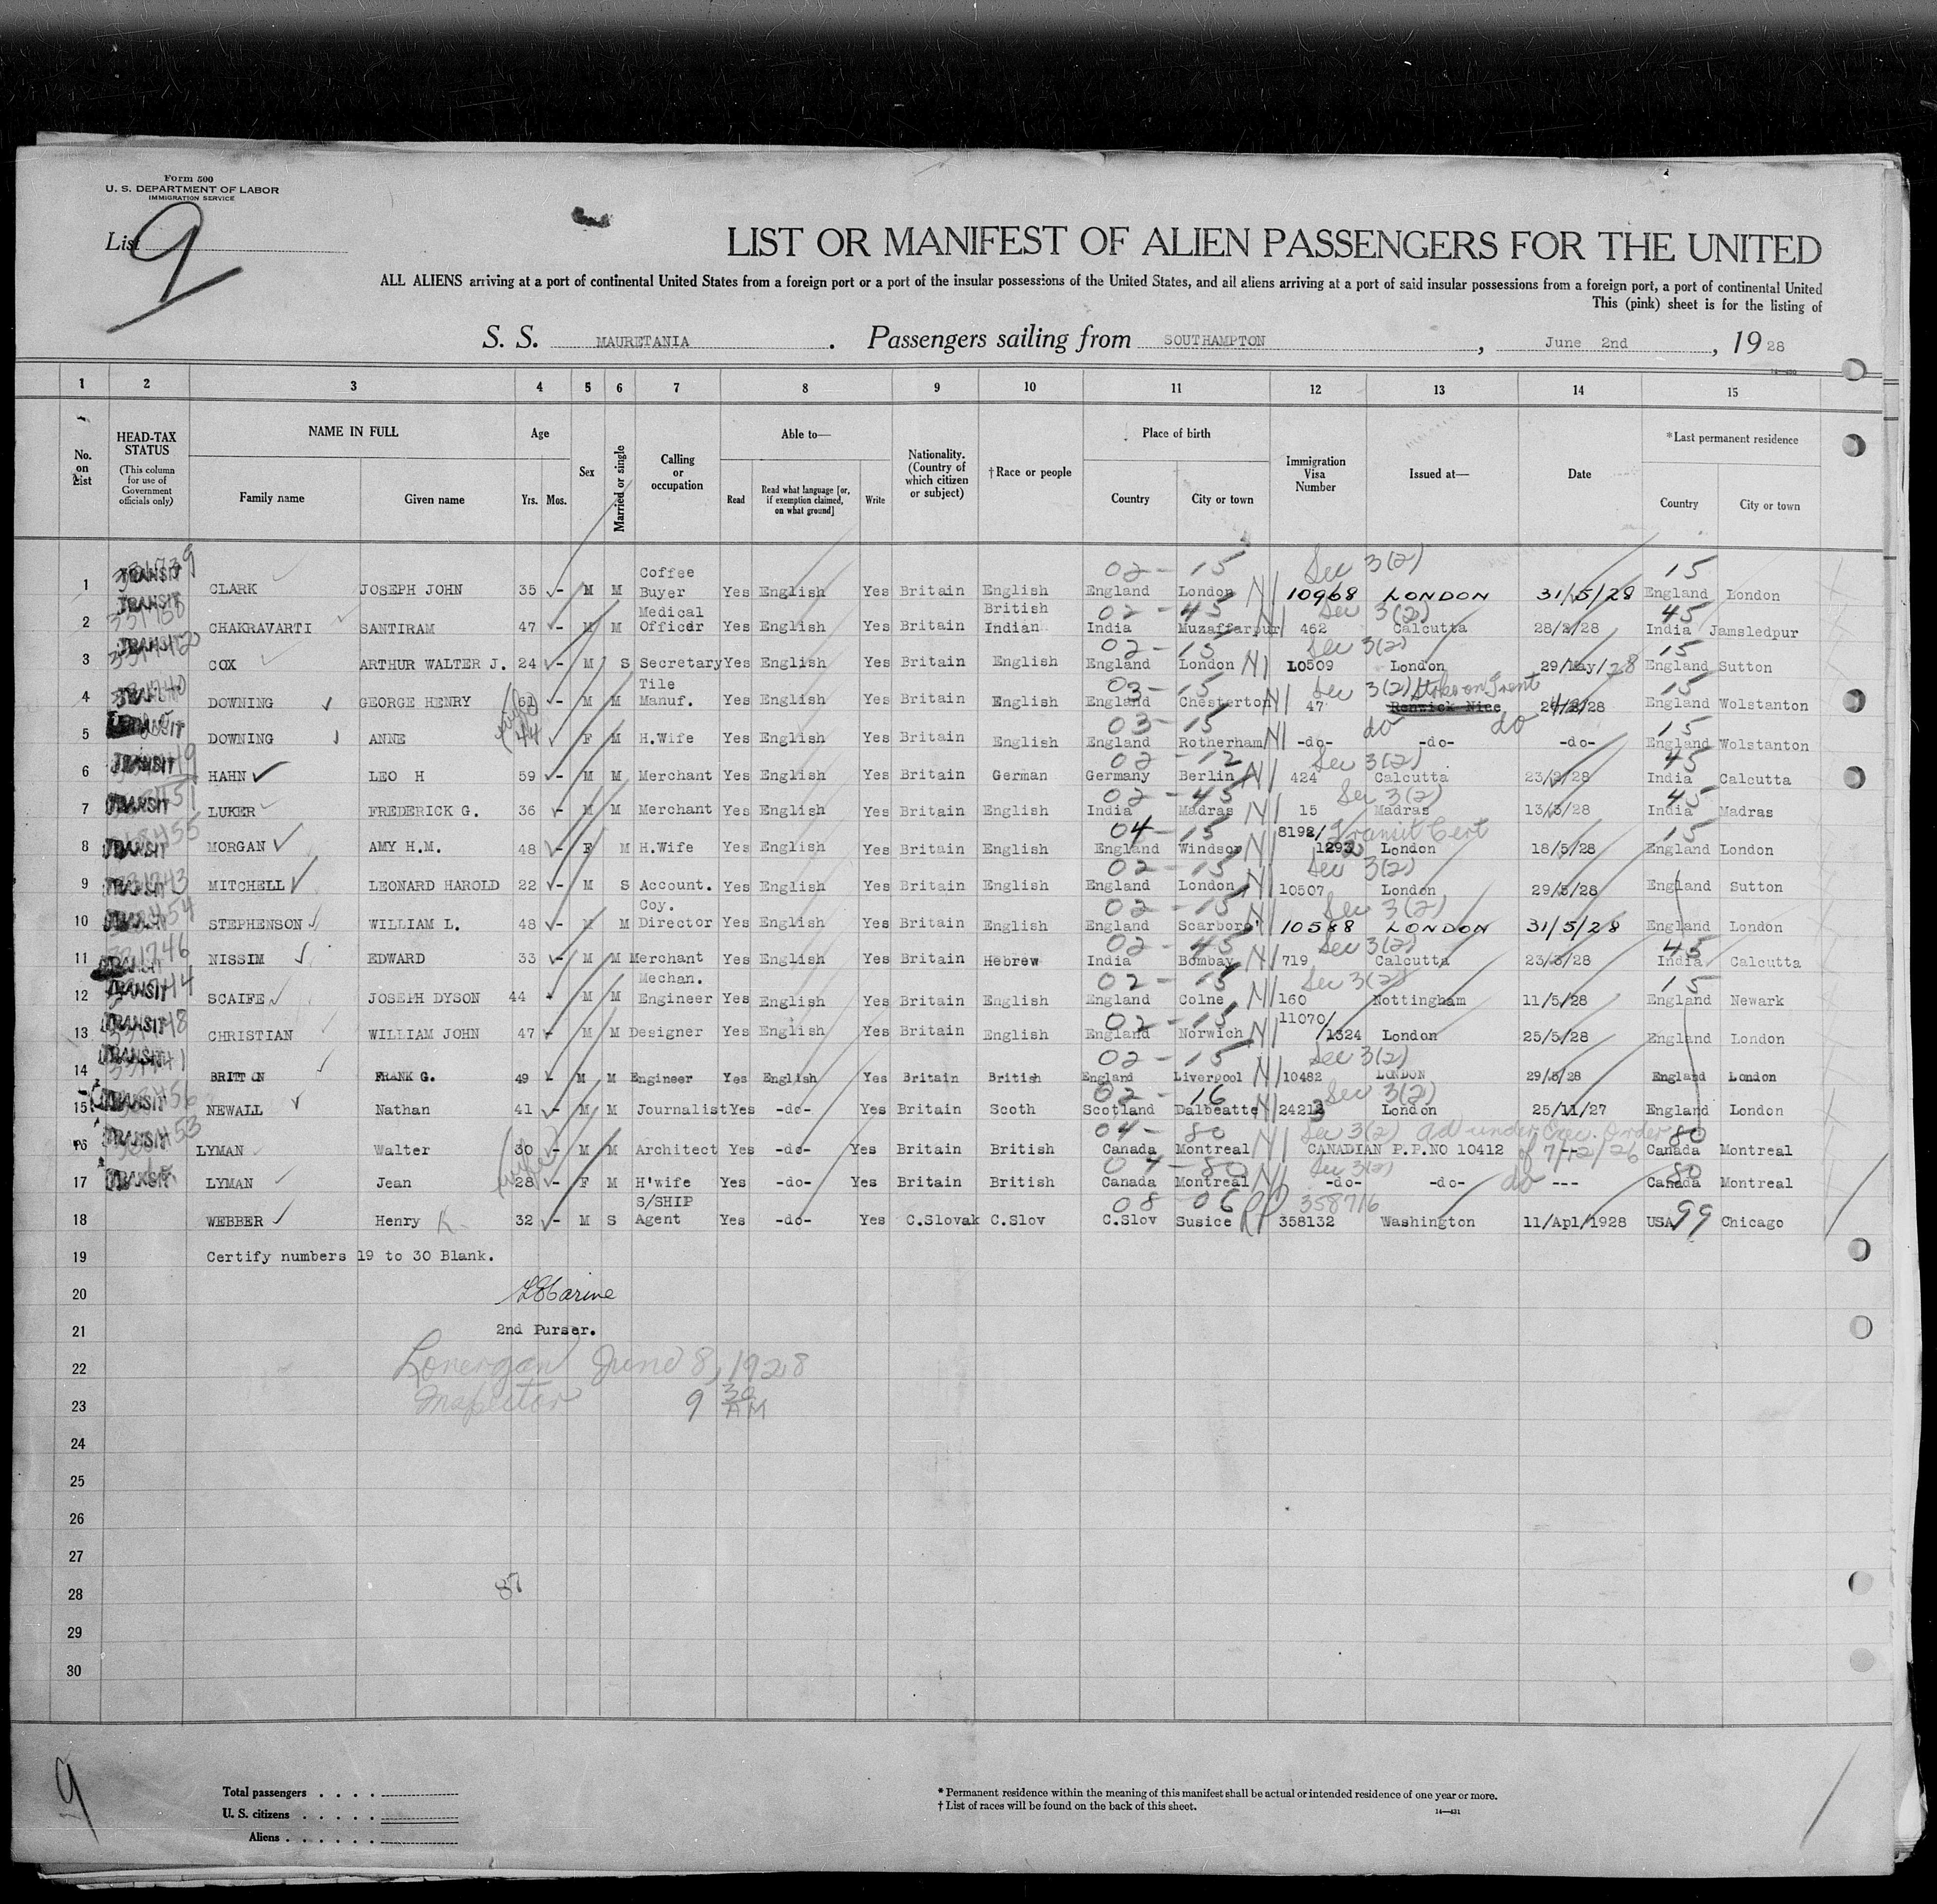 Form 500
U. S. DEPARTMENT OF LABOR
IMMIGRATION SERVICE
List 9
LIST OR MANIFEST OF ALIEN PASSENGERS FOR THE UNITED
ALL ALIENS arriving at a port of continental United States from a foreign port or a port of the insular possessions of the United States, and all aliens arriving at a port of said insular possessions from a foreign port, a port of continental United
This (pink) sheet is for the listing of
S. S. MAURETANIA . Passengers sailing from SOUTHAMPTON , June 2nd , 19 28
1 2 3 4 5 6 7 8 9 10 11 12 13 14 15
No. on List HEAD-TAX STATUS (This column for use of Government officials only) NAME IN FULL Family name Given name Age Yrs. Mos. Sex Married or single Calling or occupation Able to— Read Read what language [or, if exemption claimed, on what ground] Write Nationality. (Country of which citizen or subject) †Race or people Place of birth Country City or town Immigration Visa Number Issued at— Date *Last permanent residence Country City or town
02 - 15 Sec 3(2) 15
1 TRANSIT CLARK JOSEPH JOHN 35 - M M Coffee Buyer Yes English Yes Britain English England London N 10968 LONDON 31/5/28 England London
02 - 45 Sec 3(2) 45
2 TRANSIT CHAKRAVARTI SANTIRAM 47 - M M Medical Officer Yes English Yes Britain British Indian India Muzaffarpur 462 Calcutta 28/2/28 India Jamsledpur
02 - 15 Sec 3(2) 15
3 TRANSIT COX ARTHUR WALTER J. 24 - M S Secretary Yes English Yes Britain English England London N 10509 London 29/May/28 England Sutton
03 - 15 Sec 3(2) Stoke on Trent 15
4 DOWNING GEORGE HENRY 61 - M M Tile Manuf. Yes English Yes Britain English England Chesterton N 47 28 England Wolstanton
03 - 15 do do 15
5 DOWNING ANNE 44 F M H.Wife Yes English Yes Britain English England Rotherham N -do- -do- -do- England Wolstanton
02 - 12 Sec 3(2) 45
6 TRANSIT HAHN LEO H 59 - M M Merchant Yes English Yes Britain German Germany Berlin N 424 Calcutta 23/2/28 India Calcutta
02 - 45 Sec 3(2) 45
7 TRANSIT LUKER FREDERICK G. 36 - M M Merchant Yes English Yes Britain English India Madras N 15 Madras 13/3/28 India Madras
04 - 15 Transit Cert 15
8 TRANSIT MORGAN AMY H.M. 48 - F M H.Wife Yes English Yes Britain English England Windsor N 8192/ 1292 London 18/5/28 England London
02 - 15 Sec 3(2)
9 TRANSIT MITCHELL LEONARD HAROLD 22 - M S Account. Yes English Yes Britain English England London N 10507 London 29/5/28 England Sutton
02 - 15 Sec 3(2)
10 STEPHENSON WILLIAM L. 48 - M M Coy. Director Yes English Yes Britain English England Scarboro' N 10588 LONDON 31/5/28 England London
02 - 45 Sec 3(2) 45
11 NISSIM EDWARD 33 - M M Merchant Yes English Yes Britain Hebrew India Bombay N 719 Calcutta 23/3/28 India Calcutta
02 - 15 Sec 3(2) 15
12 TRANSIT SCAIFE JOSEPH DYSON 44 - M M Mechan. Engineer Yes English Yes Britain English England Colne N 160 Nottingham 11/5/28 England Newark
02 - 15
13 TRANSIT CHRISTIAN WILLIAM JOHN 47 - M M Designer Yes English Yes Britain English England Norwich N 11070/ /1324 London 25/5/28 England London
02 - 15 Sec 3(2)
14 TRANSIT BRITTON FRANK G. 49 - M M Engineer Yes English Yes Britain British England Liverpool N 10482 LONDON 29/5/28 England London
02 - 16 Sec 3(2)
15 TRANSIT NEWALL Nathan 41 - M M Journalist Yes -do- Yes Britain Scoth Scotland Dalbeatte N 24213 London 25/11/27 England London
04 - 80 Sec 3(2) ad under Exec. Order 80
16 TRANSIT LYMAN Walter 30 - M M Architect Yes -do- Yes Britain British Canada Montreal N CANADIAN P.P.NO 10412 of 7/12/26 Canada Montreal
04 - 80 Sec 3(2) do 80
17 TRANSIT LYMAN Jean 28 - F M H'wife Yes -do- Yes Britain British Canada Montreal N -do- -do- --- Canada Montreal
08 06 RP 358716 99
18 WEBBER Henry 32 - M S S/SHIP Agent Yes -do- Yes C.Slovak C.Slov C.Slov Susice 358132 Washington 11/Apl/1928 USA Chicago
19 Certify numbers 19 to 30 Blank.
20
21 2nd Purser.
22 Lonergan June 8, 1928
23 Inspector 9 30 AM
24
25
26
27
28 87
29
30
9
Total passengers . . . .
U. S. citizens . . . . .
Aliens . . . . . .
* Permanent residence within the meaning of this manifest shall be actual or intended residence of one year or more.
† List of races will be found on the back of this sheet.
14—431